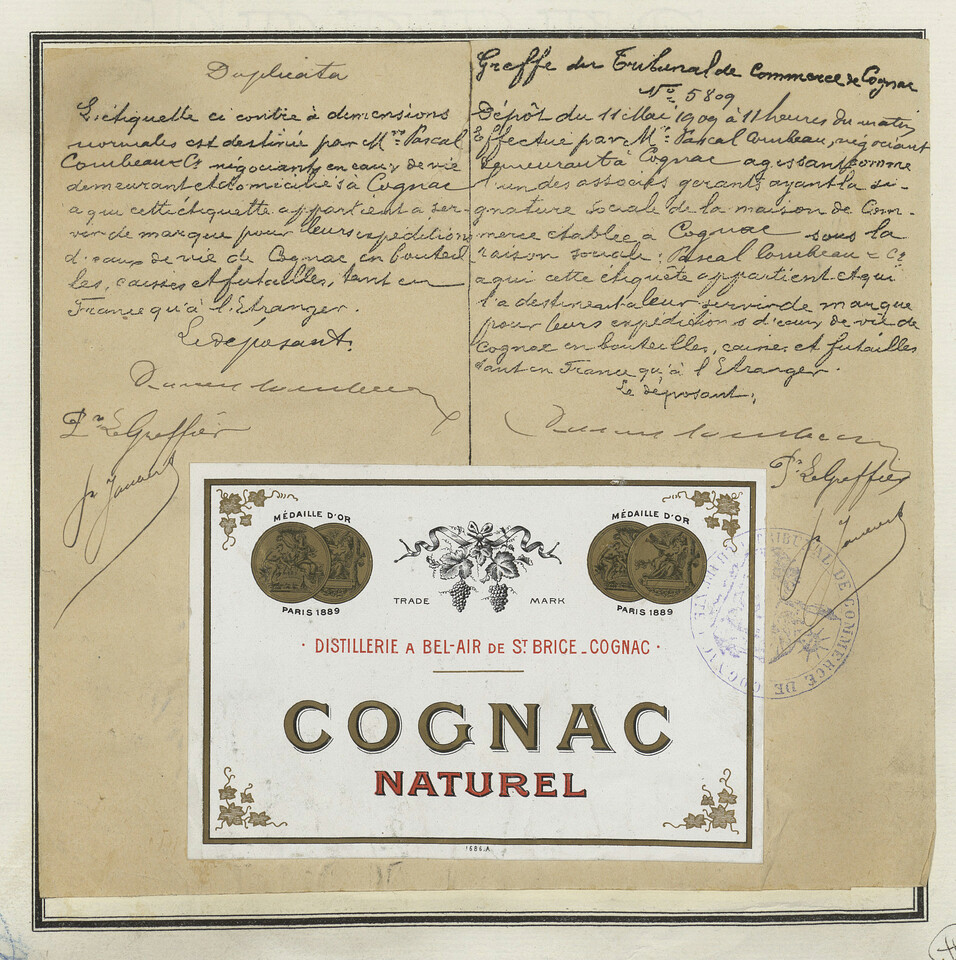 Duplicata
L'étiquette ci contre à dimensions
normales est destinée par Mrs Pascal
Combeau & Cie négociants en eaux de vie
demeurant et domiciliés à Cognac
a qui cette étiquette appartient a ser-
vir de marque pour leurs expéditions
d'eaux de vie de Cognac en bouteil
les, caisses et futailles, tant en
France qu'à l'Etranger.
Le déposant,
Pr Le Greffier
Greffe du Tribunal de Commerce de Cognac
No 5809
Dépôt du 11 Mai 1909 à 11 heures du matin
Effectué par Mr Pascal Combeau, négociant
demeurant à Cognac agissant comme
l'un des associés gérants ayant la si-
gnature sociale de la maison de Com-
merce etablee a Cognac sous la
raison sociale: Pascal Combeau & Cie
a qui cette étiquète appartient et qui
l'a destinent a leur servir de marque
pour leurs expéditions d'eaux de vie de
Cognac en bouteilles, caisses et futailles
tant en France qu'à l'Etranger.
Le déposant,
Pr Le Greffier
MÉDAILLE D'OR
PARIS 1889
TRADE MARK
MÉDAILLE D'OR
PARIS 1889
· DISTILLERIE A BEL-AIR DE ST BRICE_COGNAC ·
COGNAC
NATUREL
1686.A
TRIBUNAL DE COMMERCE DE COGNAC